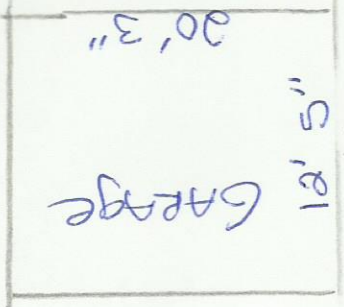 GARAge
12' 5"
20' 3"